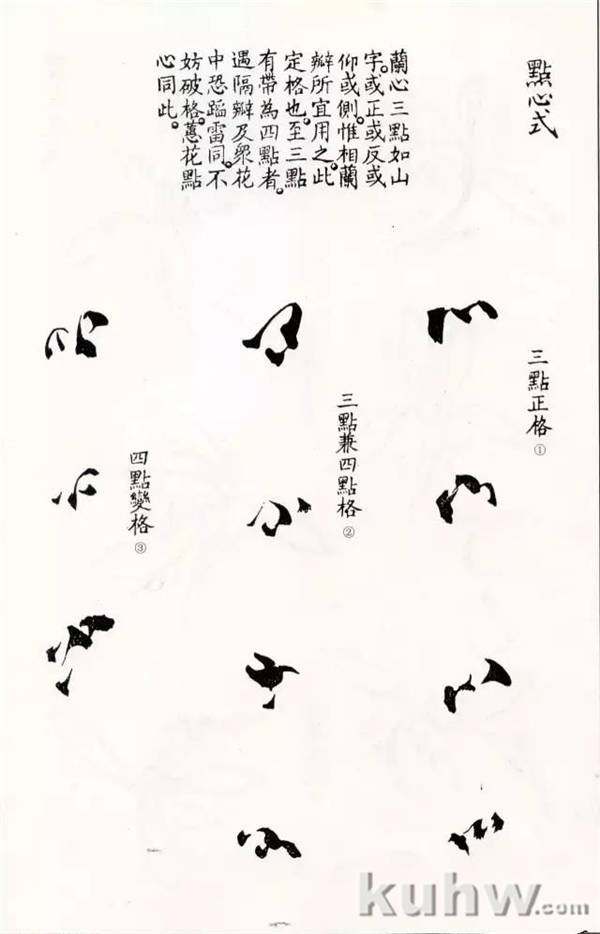 點心式
蘭心三點如山
字。或正或反或
仰或側。惟相蘭
瓣所宜用之。此
定格也。至三點
有帶為四點者。
遇隔瓣及眾花
中恐蹈雷同。不
妨破格。蕙花點
心同此。
三點正格①
三點兼四點格②
四點變格③
kuhw.com